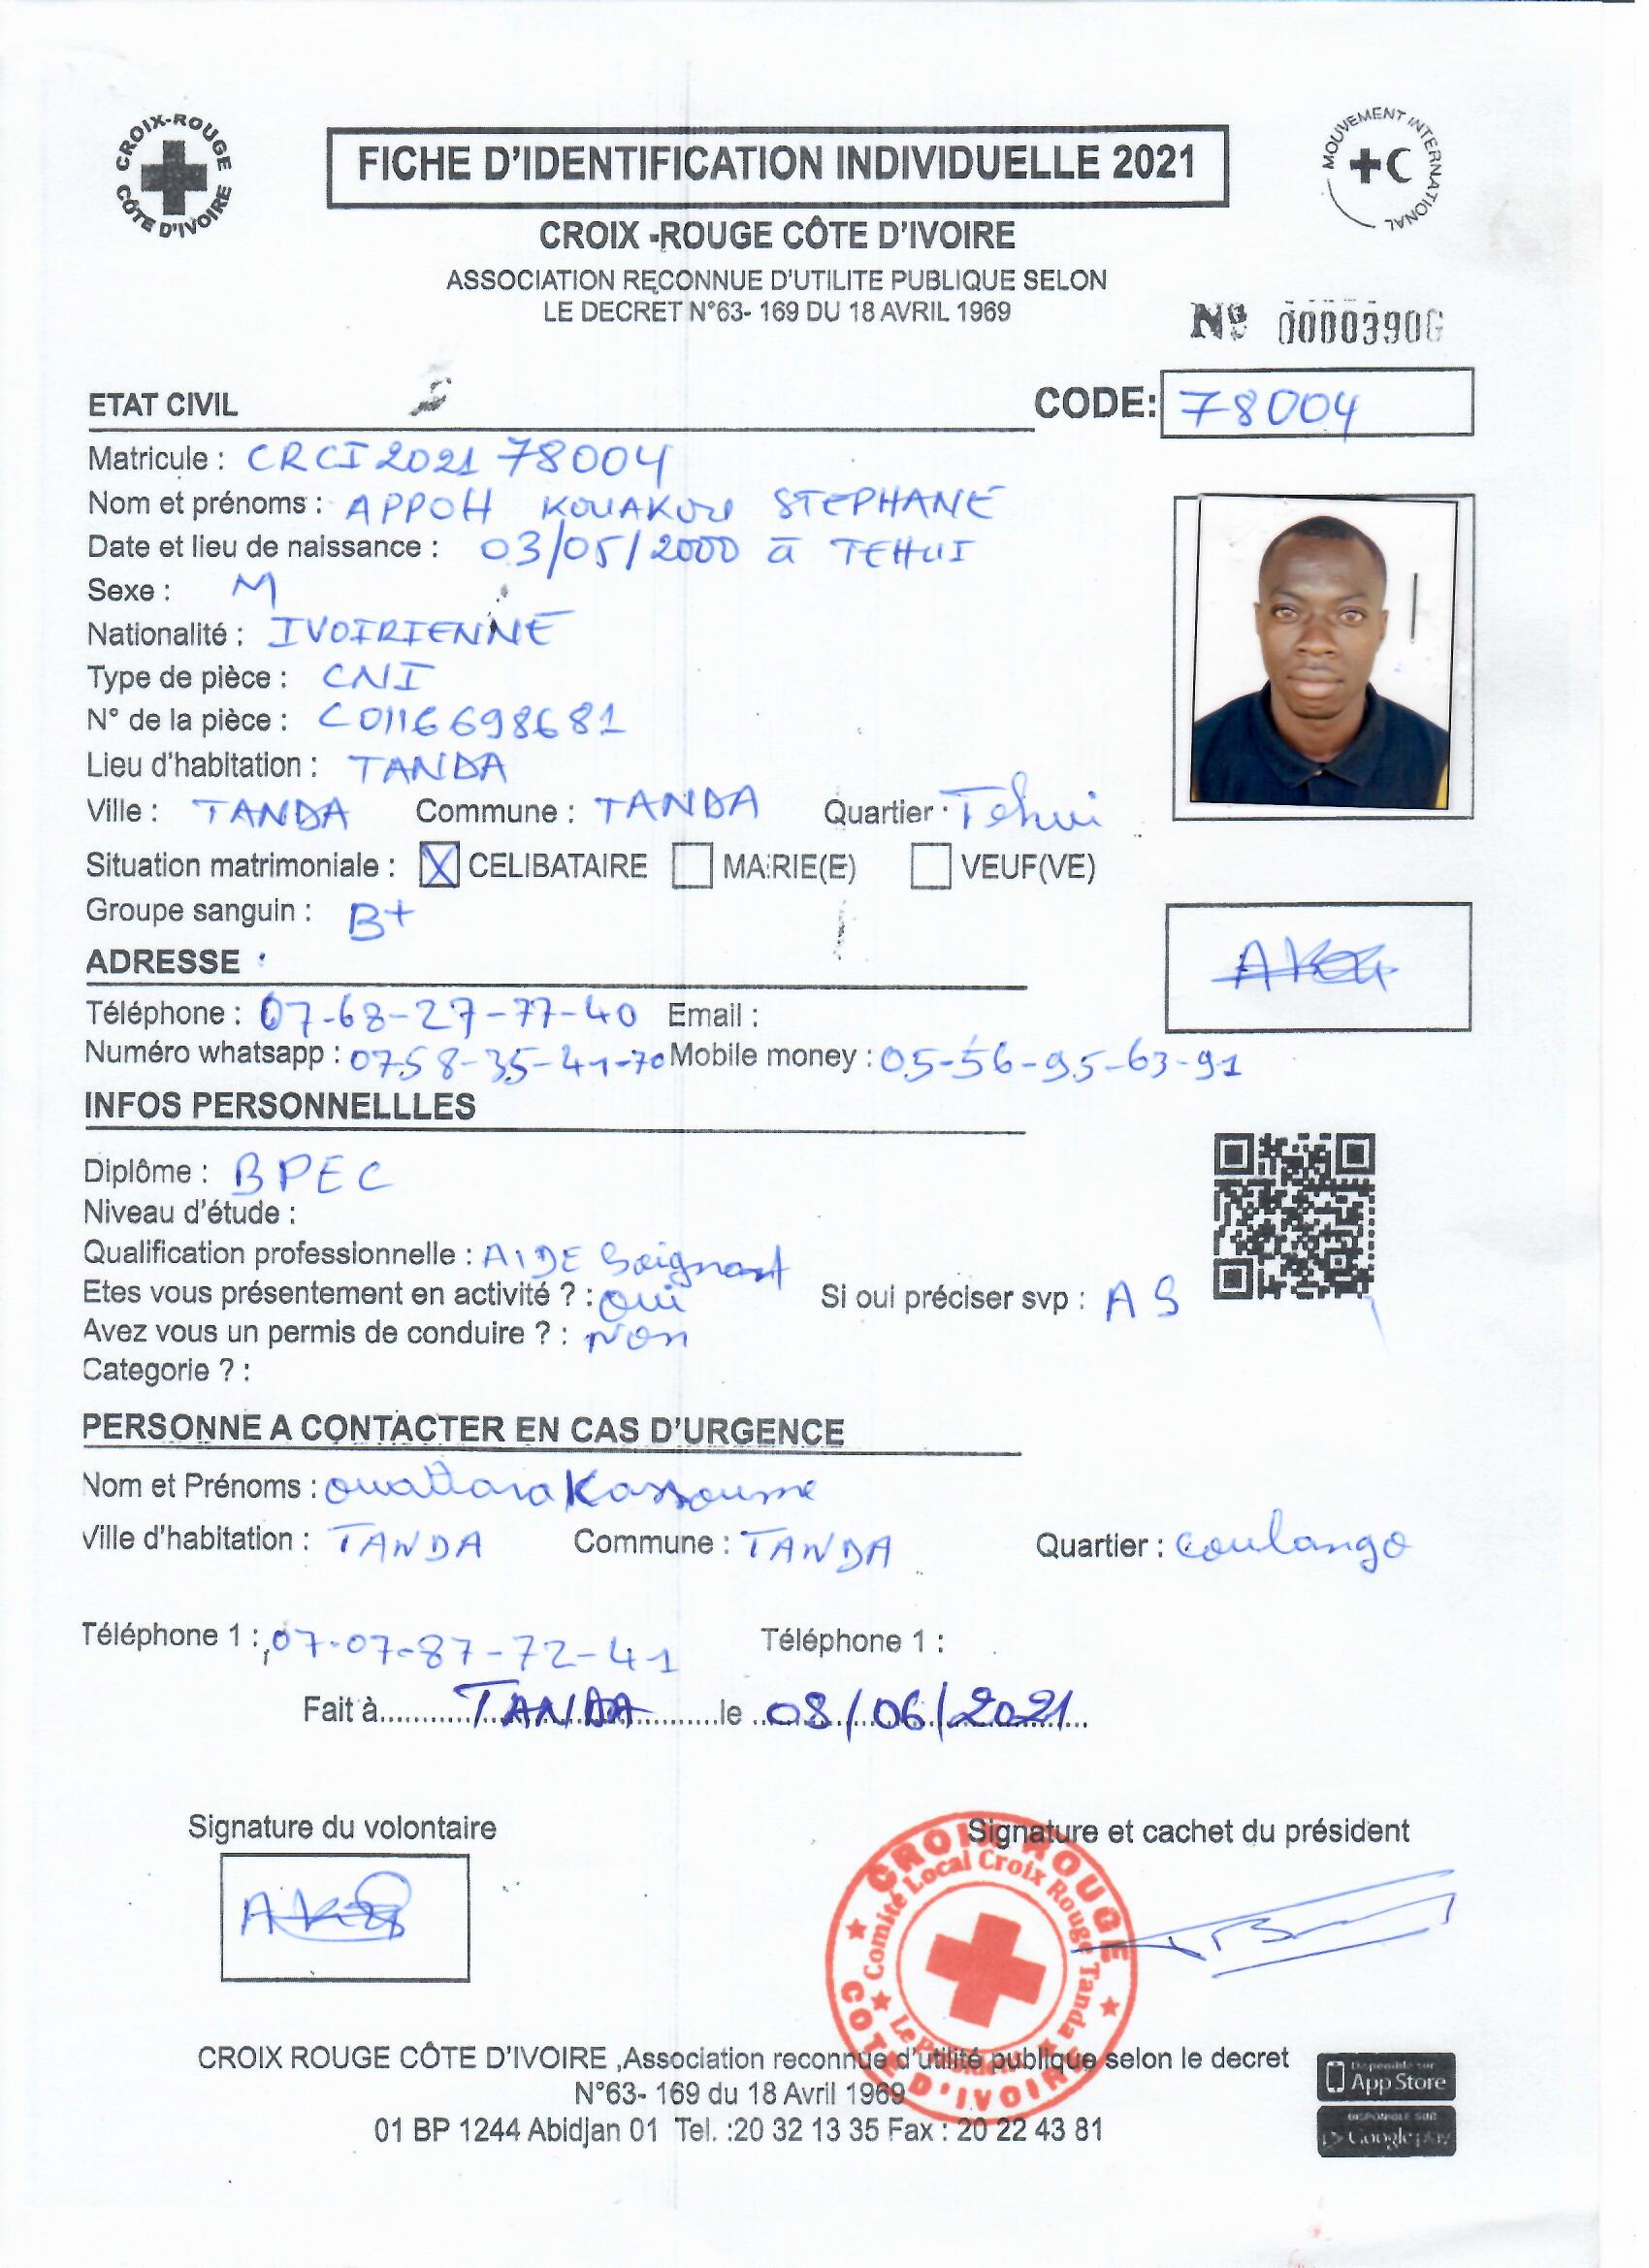 CROIX-ROUGE
CÔTE D'IVOIRE
FICHE D'IDENTIFICATION INDIVIDUELLE 2021
MOUVEMENT INTERNATIONAL
CROIX -ROUGE CÔTE D'IVOIRE
ASSOCIATION RECONNUE D'UTILITE PUBLIQUE SELON
LE DECRET N°63- 169 DU 18 AVRIL 1969
Nº 0000390
ETAT CIVIL CODE: 78004
Matricule : CRCI 2021 78004
Nom et prénoms : APPOH KOUAKOU STEPHANE
Date et lieu de naissance : 03/05/2000 à TEHUI
Sexe : M
Nationalité : IVOIRIENNE
Type de pièce : CNI
N° de la pièce : C0116698681
Lieu d'habitation : TANDA
Ville : TANDA Commune : TANDA Quartier : Tehui
Situation matrimoniale : X CELIBATAIRE MARIE(E) VEUF(VE)
Groupe sanguin : B+
ADRESSE
Téléphone : 07-68-27-77-40 Email :
Numéro whatsapp : 0758-35-41-70 Mobile money : 05-56-95-63-91
INFOS PERSONNELLLES
Diplôme : BPEC
Niveau d'étude :
Qualification professionnelle : AIDE Soignant
Etes vous présentement en activité ? : oui Si oui préciser svp : AS
Avez vous un permis de conduire ? : Non
Categorie ? :
PERSONNE A CONTACTER EN CAS D'URGENCE
Nom et Prénoms : Ouattara Kassoume
Ville d'habitation : TANDA Commune : TANDA Quartier : coulango
Téléphone 1 : 07-07-87-72-41 Téléphone 1 :
Fait à TANDA le 08/06/2021
Signature du volontaire Signature et cachet du président
CROIX ROUGE
Comité Local Croix Rouge Tanda
Le Président
COTE D'IVOIRE
CROIX ROUGE CÔTE D'IVOIRE ,Association reconnue d'utilité publique selon le decret
N°63- 169 du 18 Avril 1969
01 BP 1244 Abidjan 01 Tel. :20 32 13 35 Fax : 20 22 43 81
Disponible sur
App Store
DISPONIBLE SUR
Google play